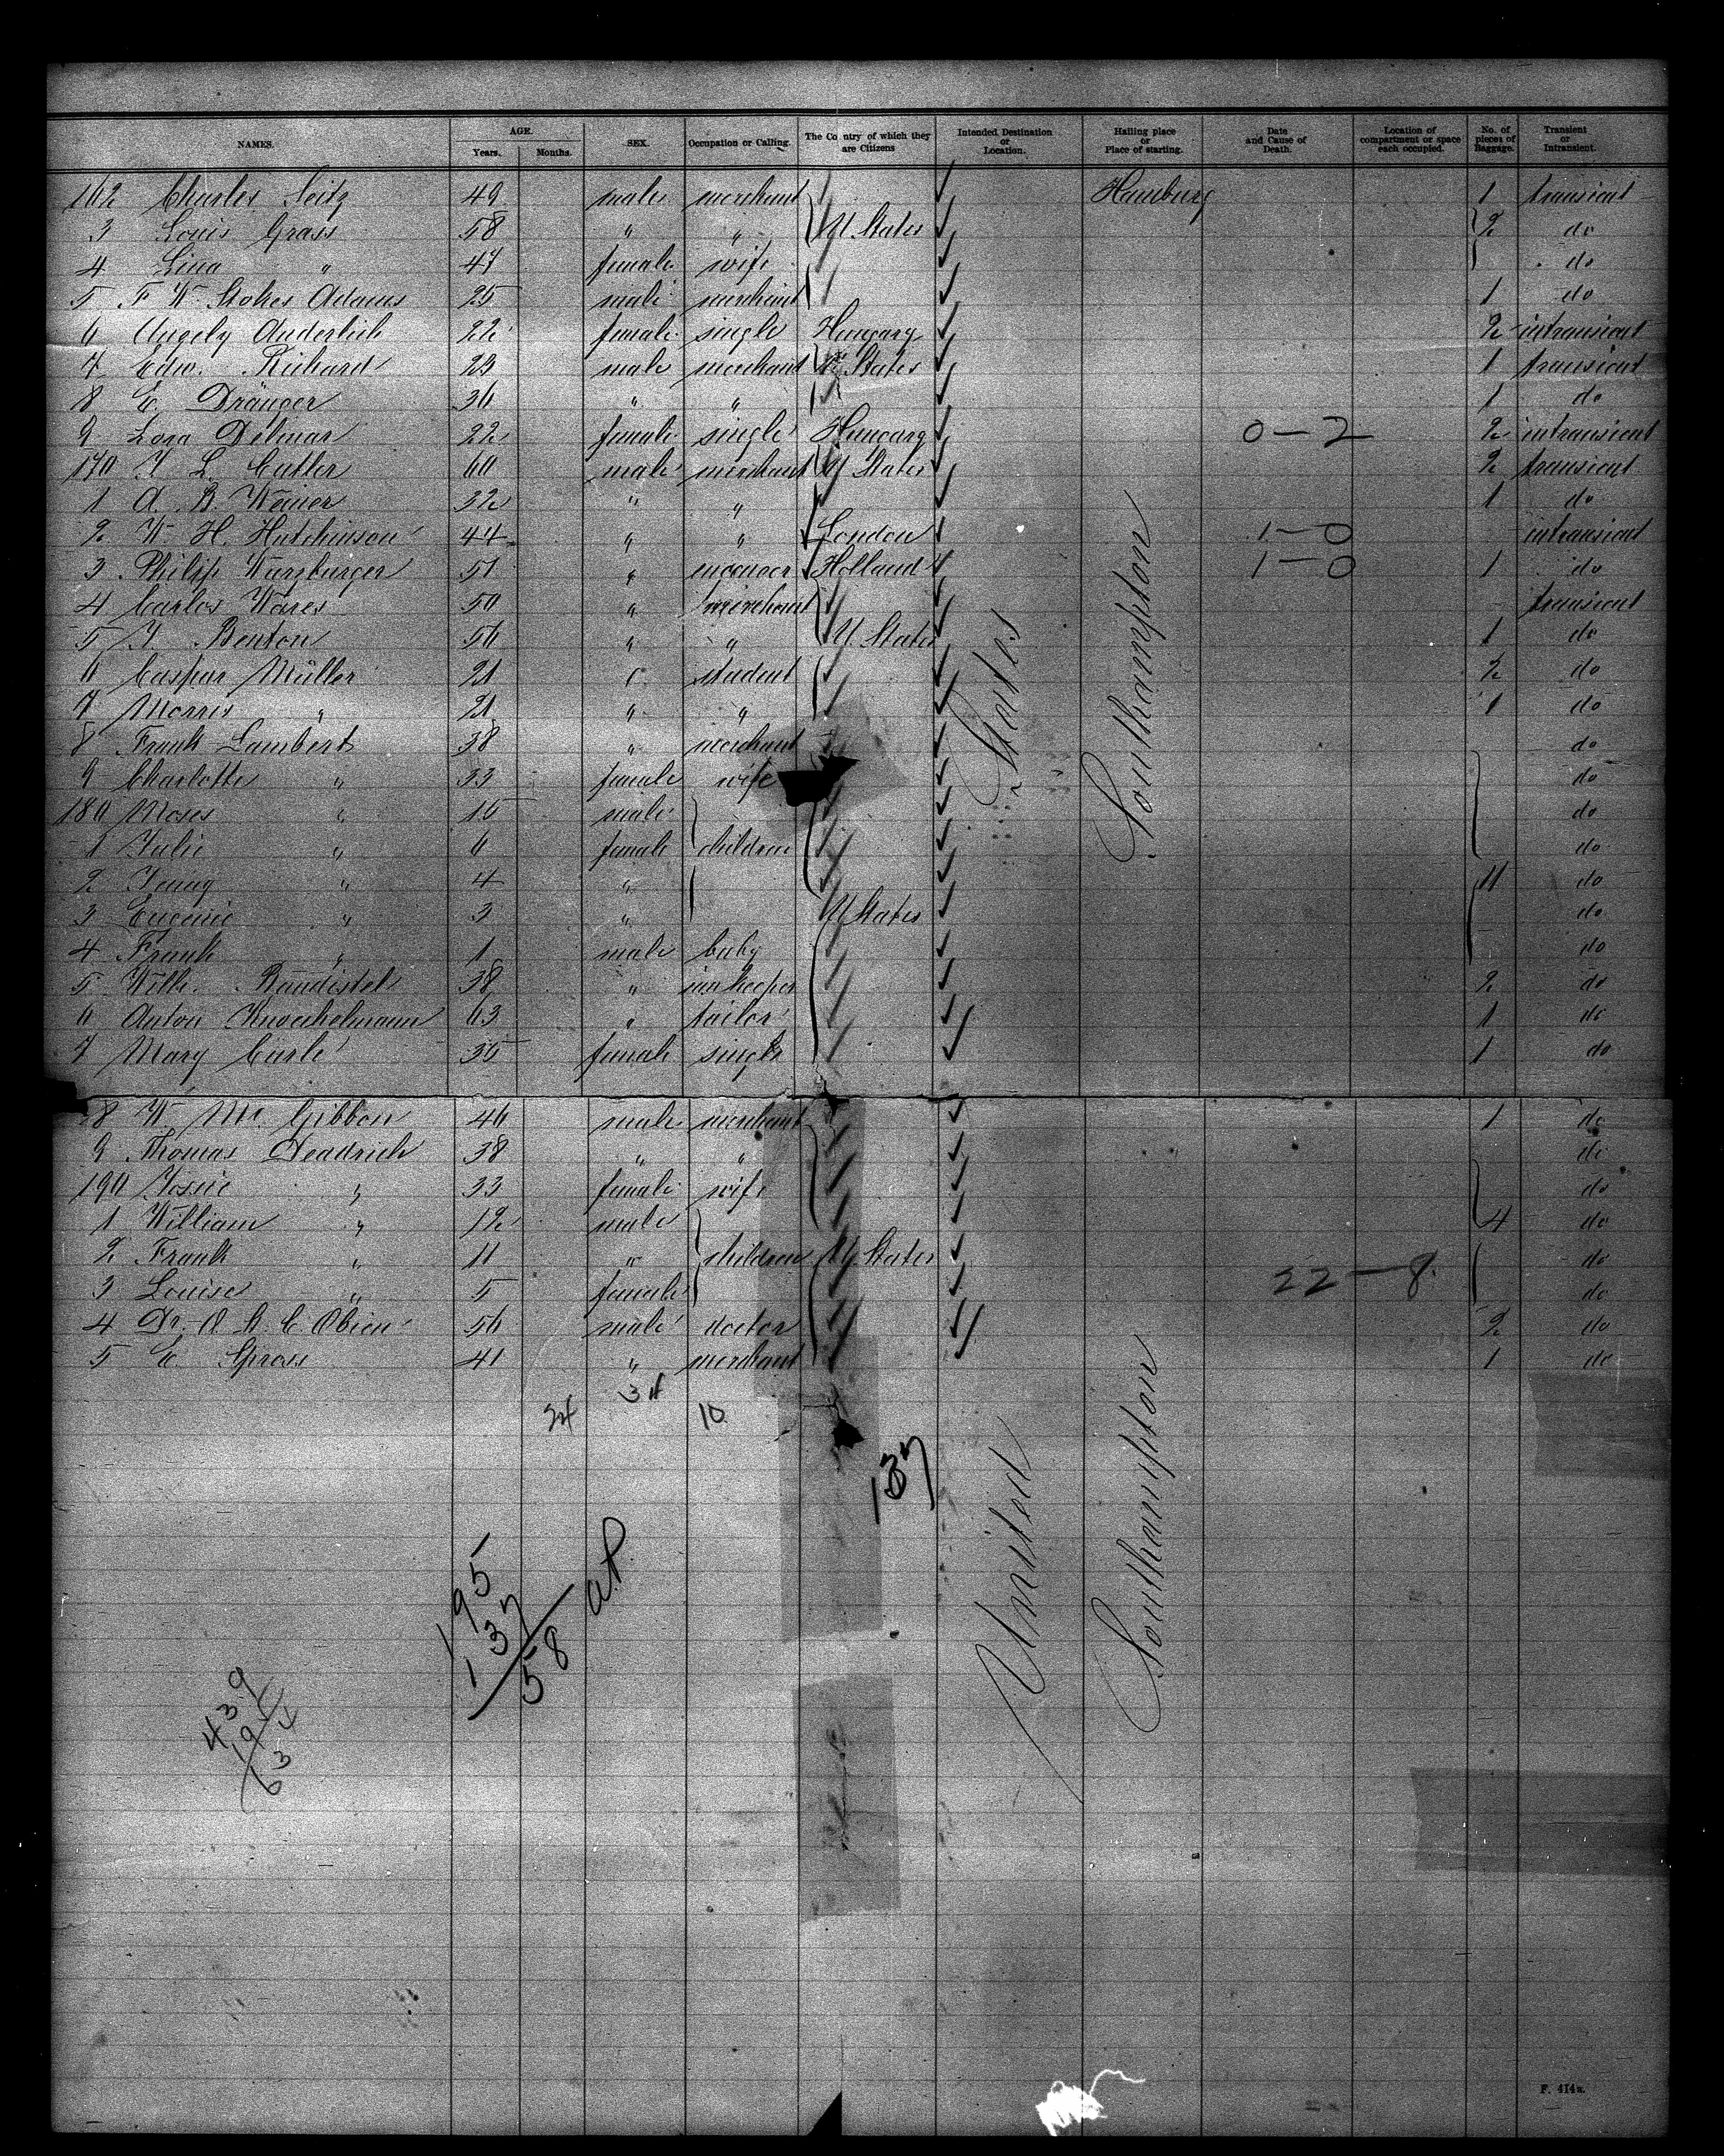 NAMES. AGE. Years. Months. SEX. Occupation or Calling. The Country of which they are Citizens Intended Destination or Location. Hailing place or Place of starting. Date and Cause of Death. Location of compartment or space each occupied. No. of pieces of Baggage. Transient or Intransient.
162 Charles Seitz 49 male merchant Hamburg 1 transient
3 Louis Grass 58 " " U. States 2 do
4 Lina " 47 female wife do
5 F W Stokes Adams 25 male merchant 1 do
6 Angely Anderlich 22 female single Hungary 2 intransient
7 Edw. Richard 23 male merchant U. States 1 transient
8 E. Dränger 36 " " 1 do
9 Lora Delmar 22 female single Hungary 0-2 2 intransient
170 T. L. Cutler 60 male merchant U States 2 transient
1 A. B. Weiner 32 " " 1 do
2 W. H. Hutchinson 44 " " London 1-0 intransient
3 Philip Wurzburger 51 " engeneer Holland 1-0 1 do
4 Carlos Wares 50 " merchant transient
5 T. Benton 56 " " U. States 1 do
6 Caspar Müller 21 " student 2 do
7 Morris " 21 " " 1 do
8 Frank Lambert 38 " merchant do
9 Charlotte " 33 female wife do
180 Moses " 15 male do
1 Julie " 6 female children do
2 Jenny " 4 " 11 do
3 Eugenie " 3 " U States do
4 Frank " 1 male baby do
5 Wilh. Baudistel 38 " innkeeper 2 do
6 Anton 63 " tailor 1 do
7 Mary Curle 35 female single 1 do
8 W. Mc. Gibbon 46 male merchant 1 do
9 Thomas Deadrich 38 " " do
190 Josie " 33 female wife do
1 William " 12 male 4 do
2 Frank " 11 " children U. States do
3 Louise " 5 female 22-8. do
4 Dr. 56 male doctor 2 do
5 E. Gross 41 " merchant 1 do
States
Southampton
34
24 10
137
United
Southampton
195
137
58 a.P.
439
195
634
F. 414a.